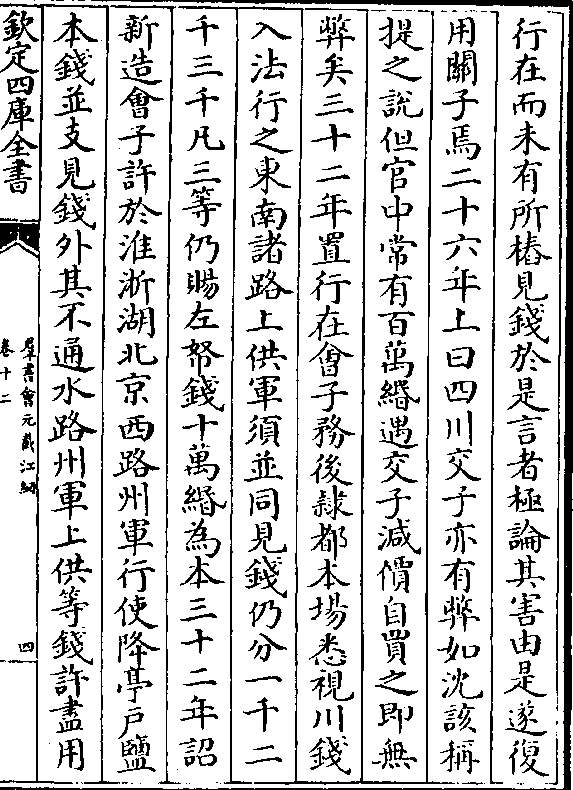 行在而未有所樁見錢於是言者極論其害由是遂復
用關子焉二十六年上曰四川交子亦有弊如沈該稱
提之說但官中常有百萬緡遇交子減價自買之即無
弊矣三十二年置行在會子務後隸都本場悉視川錢
入法行之東南諸路上供軍須並同見錢仍分一千二
千三千凡三等仍賜左帑錢十萬緡為本三十二年詔
新造會子許於淮浙湖北京西路州軍行使降亭戶鹽
本錢並支見錢外其不通水路州軍上供等錢許盡用
欽定四庫全書
羣書會元截江網
卷十二
四